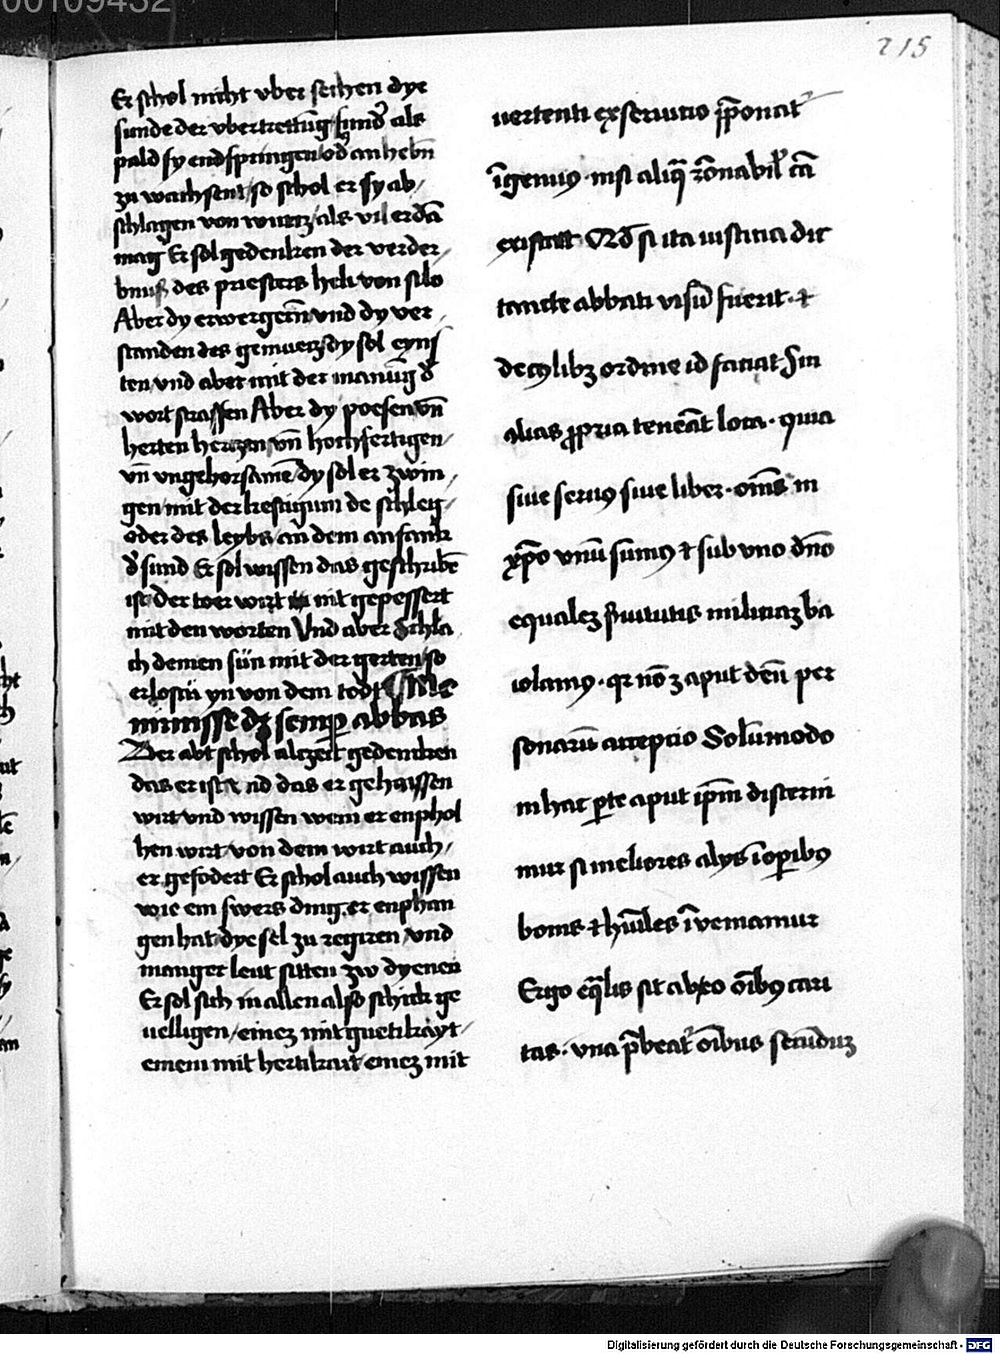 00109432
215
Er schol nicht vber sechen dye
sunde der vbertrettūg sund̕ als
pald sy endspringen od̕ anhebn̄
zu wachsent so schol er sy ab/
schlagen von wurtz als vil er dā
mag Er sol gedenken der verder/
bnuß des priesters heli von silo
Aber dy erwergern̄ vnd dy ver/
standen des gemuetz dy sol eyns
ten vnd aber mit der manūg d̕
wort straffen Aber dy poesen vn̄
herten hertzen vn̄ hochfertigen/
vn̄ vngehorsamē dy sol er zwin/
gen mit der kestigum de schleg/
oder des leybs an dem anfank
d̕ sund Er sol wissen das geschribē
ist der toer wirt nit gepessert
mit den worten Vnd aber schla
ch deinen sün mit der gerten so
erlostu yn von dem todt Me
minisse dz semꝑ abbas
Der abt schol alczeit gedencken
das er ist nd das er gehayssen
wirt vnd wissen wem er enphol
hen wirt von dem wirt auch/
er gefodert Er schol auch wissen
wie ein swers ding er enphan
gen hat dye sel zu regiren vnd
manger leut sitten zw dyenen
Er sol sich in allen also schick ge
uelligen/einez mit guetikayt/
einem mit hertikait einez mit
uertenti ex seruitio p̄ponat̕
īgenuꝰ nisi aliq̄ rōnabil̕ cā
existat Qd̕ si ita iustitia dic
tante abbati visū fuerit ⁊
de cuiꝰlibꝫ ordine id faciat Sin
alias ꝓpria teneāt loca quia
siue seruꝰ siue liber om̄s in
xp̄o vnū sumꝰ ⁊ sub vno dn̄o
equalez ẜuitutis militiaz ba
iolamꝰ qr nō ꝫ aput deū per
sonarū acceptio Solūmodo
in hac ꝑte aput ip̄m discerni
mur si meliores alys ī oꝑibꝰ
bonis ⁊ hūiles īueniamur
Ergo eq̄lis sit ab eo oībꝰ cari
tas vna p̄beat̕ oībus secūduz
Digitalisierung gefördert durch die Deutsche Forschungsgemeinschaft - DFG